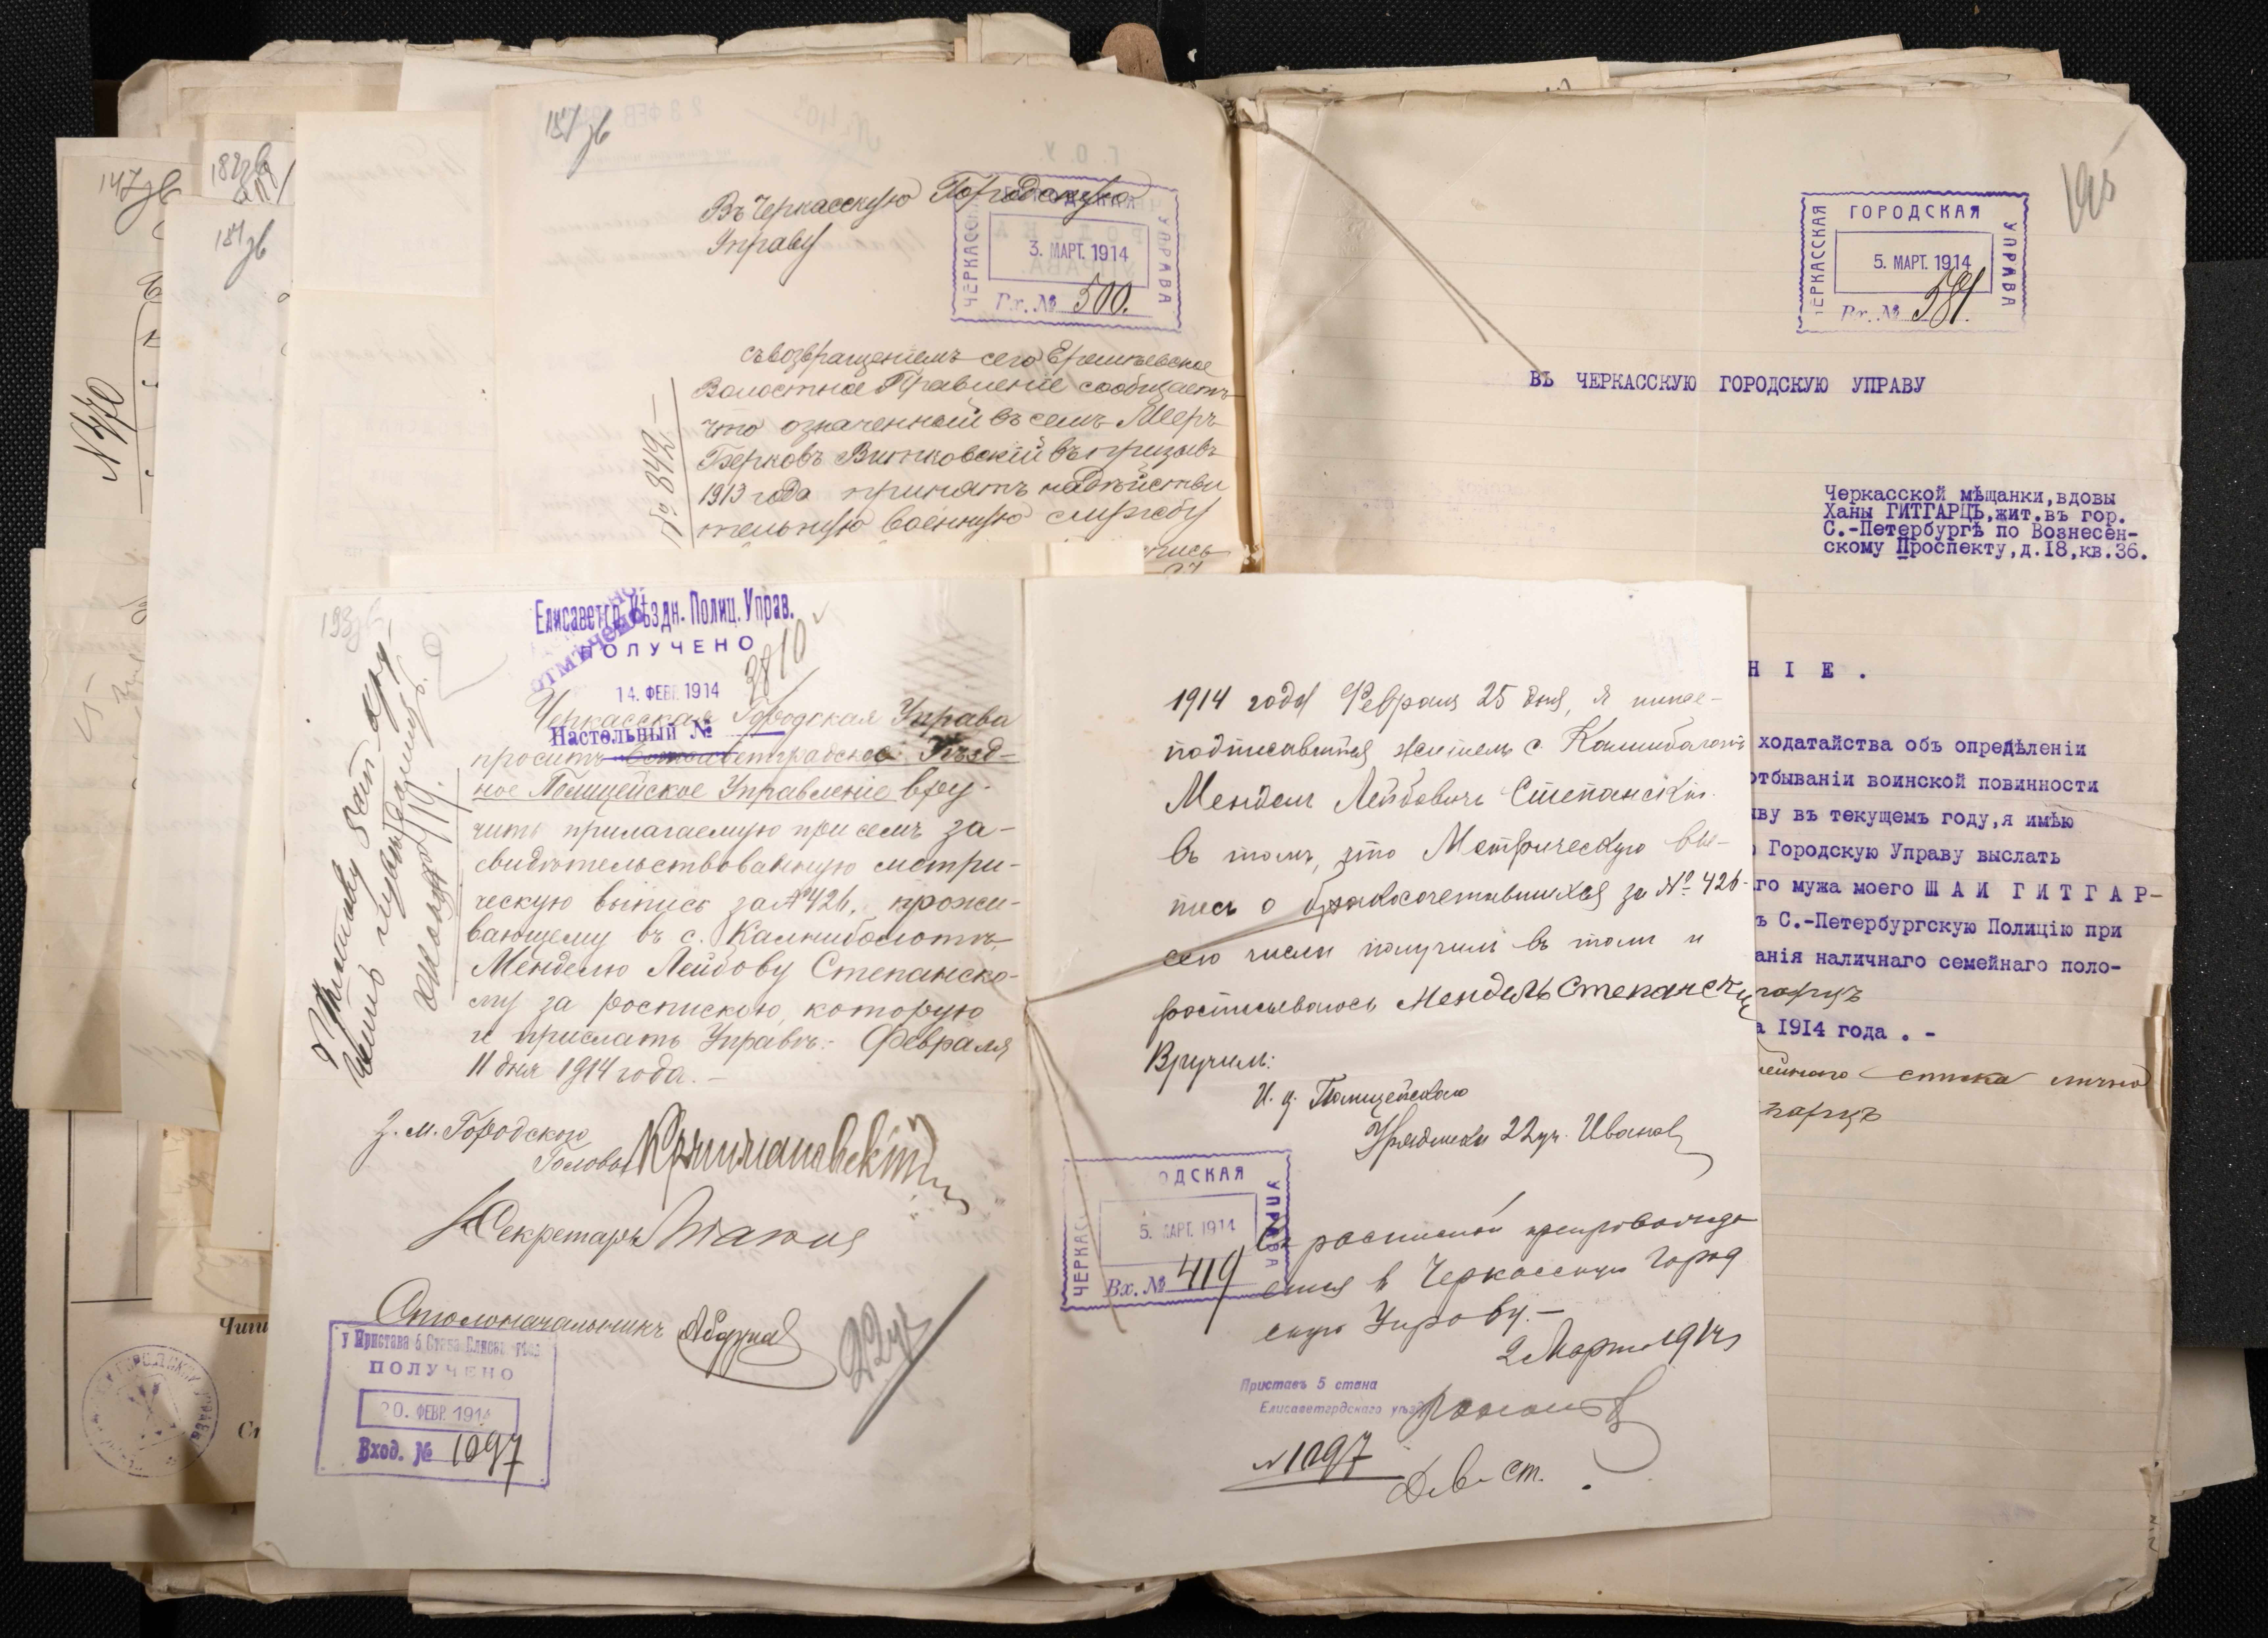 147 зв
182 зв
184 зв
№ 470
187 зв
Въ Черкасскую Городскую
Управу
ЧЕРКАССКАЯ
ГОРОДСКАЯ
УПРАВА
3. МАРТ. 1914
Вх. № 500.
№ 842
съ возвращеніемъ сего
Волостное Правленіе сообщаетъ
что означенный въ семъ Меер
Берковъ Витковскій въ призывъ
1913 года принятъ на дѣйстви
тельную военную службу
195
ЧЕРКАССКАЯ
ГОРОДСКАЯ
УПРАВА
5. МАРТ. 1914
Вх. № 581.
ВЪ ЧЕРКАССКУЮ ГОРОДСКУЮ УПРАВУ
Черкасской мѣщанки, вдовы
Ханы ГИТГАРЦЪ, жит. въ гор.
С.-Петербургѣ по Вознесен-
скому Проспекту, д. 18, кв. 36.
Н І Е .
ходатайства объ опредѣленіи
отбываніи воинской повинности
ву въ текущемъ году, я имѣю
Городскую Управу выслать
го мужа моего Ш А И Г И Т Г А Р -
ъ С.-Петербургскую Полицію при
анія наличнаго семейнаго поло-
гарцъ
а 1914 года . -
списка лично
гарцъ
193 зв
Елисаветгр. Уѣздн. Полиц. Управ.
ОТМѢЧЕНО
ПОЛУЧЕНО
3810
14. ФЕВР. 1914
Настольный №
Черкасская Городская Управа
проситъ Елисаветградское Уѣзд-
ное Полицейское Управленіе вру-
чить прилагаемую при семъ за-
свидѣтельствованную метри-
ческую выпись за № 426, прожи-
вающему въ с. Калниболотѣ
Менделю Лейбову Степанско-
му за роспискою, которую
и прислать Управѣ. Февраля
11 дня 1914 года. -
З. м. Городского
Головы
Секретарь
Столоначальникъ
22 уч
у Пристава 5 Стана Елисав. уѣзда
ПОЛУЧЕНО
20. ФЕВР. 1914
Вход. № 1097
1914 года Февраля 25 дня, я ниже-
подписавшійся житель с. Калниболотъ
Мендель Лейбовичъ Степанскій
въ томъ, что Метрическую вы-
пись о бракосочетавшихся за № 426
сего числа получилъ въ томъ и
росписываюсь Мендель Степанский
Вручилъ:
И. д. Полицейскаго
Урядника 22 уч. Иванов
ЧЕРКАС
ОДСКАЯ
УПРАВА
5. МАРТ. 1914
Вх. № 419
Съ роспиской препровожда
ется в Черкасскую Город
скую Управу. -
2 Марта 1914
Приставъ 5 стана
Елисаветградскаго уѣзда
№ 1097